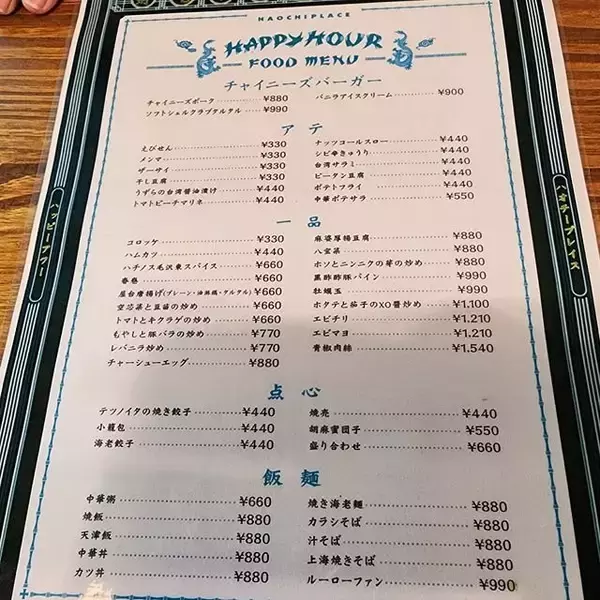 HAOCHIPLACE
HAPPY HOUR
FOOD MENU
チャイニーズバーガー
チャイニーズポーク ¥880
ソフトシェルクラブタルタル ¥990
バニラアイスクリーム ¥900
アテ
えびせん ¥330
メンマ ¥330
ザーサイ ¥330
干し豆腐 ¥330
うずらの台湾醤油漬け ¥440
トマトピーチマリネ ¥440
ナッツコールスロー ¥440
シビ辛きゅうり ¥440
台湾サラミ ¥440
ピータン豆腐 ¥440
ポテトフライ ¥440
中華ポテサラ ¥550
一品
コロッケ ¥330
ハムカツ ¥440
ハチノス毛沢東スパイス ¥660
春巻 ¥660
屋台唐揚げ(プレーン・油淋鶏・タルタル) ¥660
空芯菜と豆苗の炒め ¥660
トマトとキクラゲの炒め ¥660
もやしと豚バラの炒め ¥770
レバニラ炒め ¥770
チャーシューエッグ ¥880
麻婆厚揚豆腐 ¥880
八宝菜 ¥880
ホソとニンニクの芽の炒め ¥880
黒酢酢豚パイン ¥990
牡蠣玉 ¥990
ホタテと茄子のXO醬炒め ¥1,100
エビチリ ¥1,210
エビマヨ ¥1,210
青椒肉絲 ¥1,540
点心
テツノイタの焼き餃子 ¥440
小籠包 ¥440
海老餃子 ¥440
焼売 ¥440
胡麻蜜団子 ¥550
盛り合わせ ¥660
飯麺
中華粥 ¥660
焼飯 ¥880
天津飯 ¥880
中華丼 ¥880
カツ丼 ¥880
焼き海老麺 ¥880
カラシそば ¥880
汁そば ¥880
上海焼きそば ¥880
ルーローファン ¥990
ハッピーアワー
ハオチープレイス